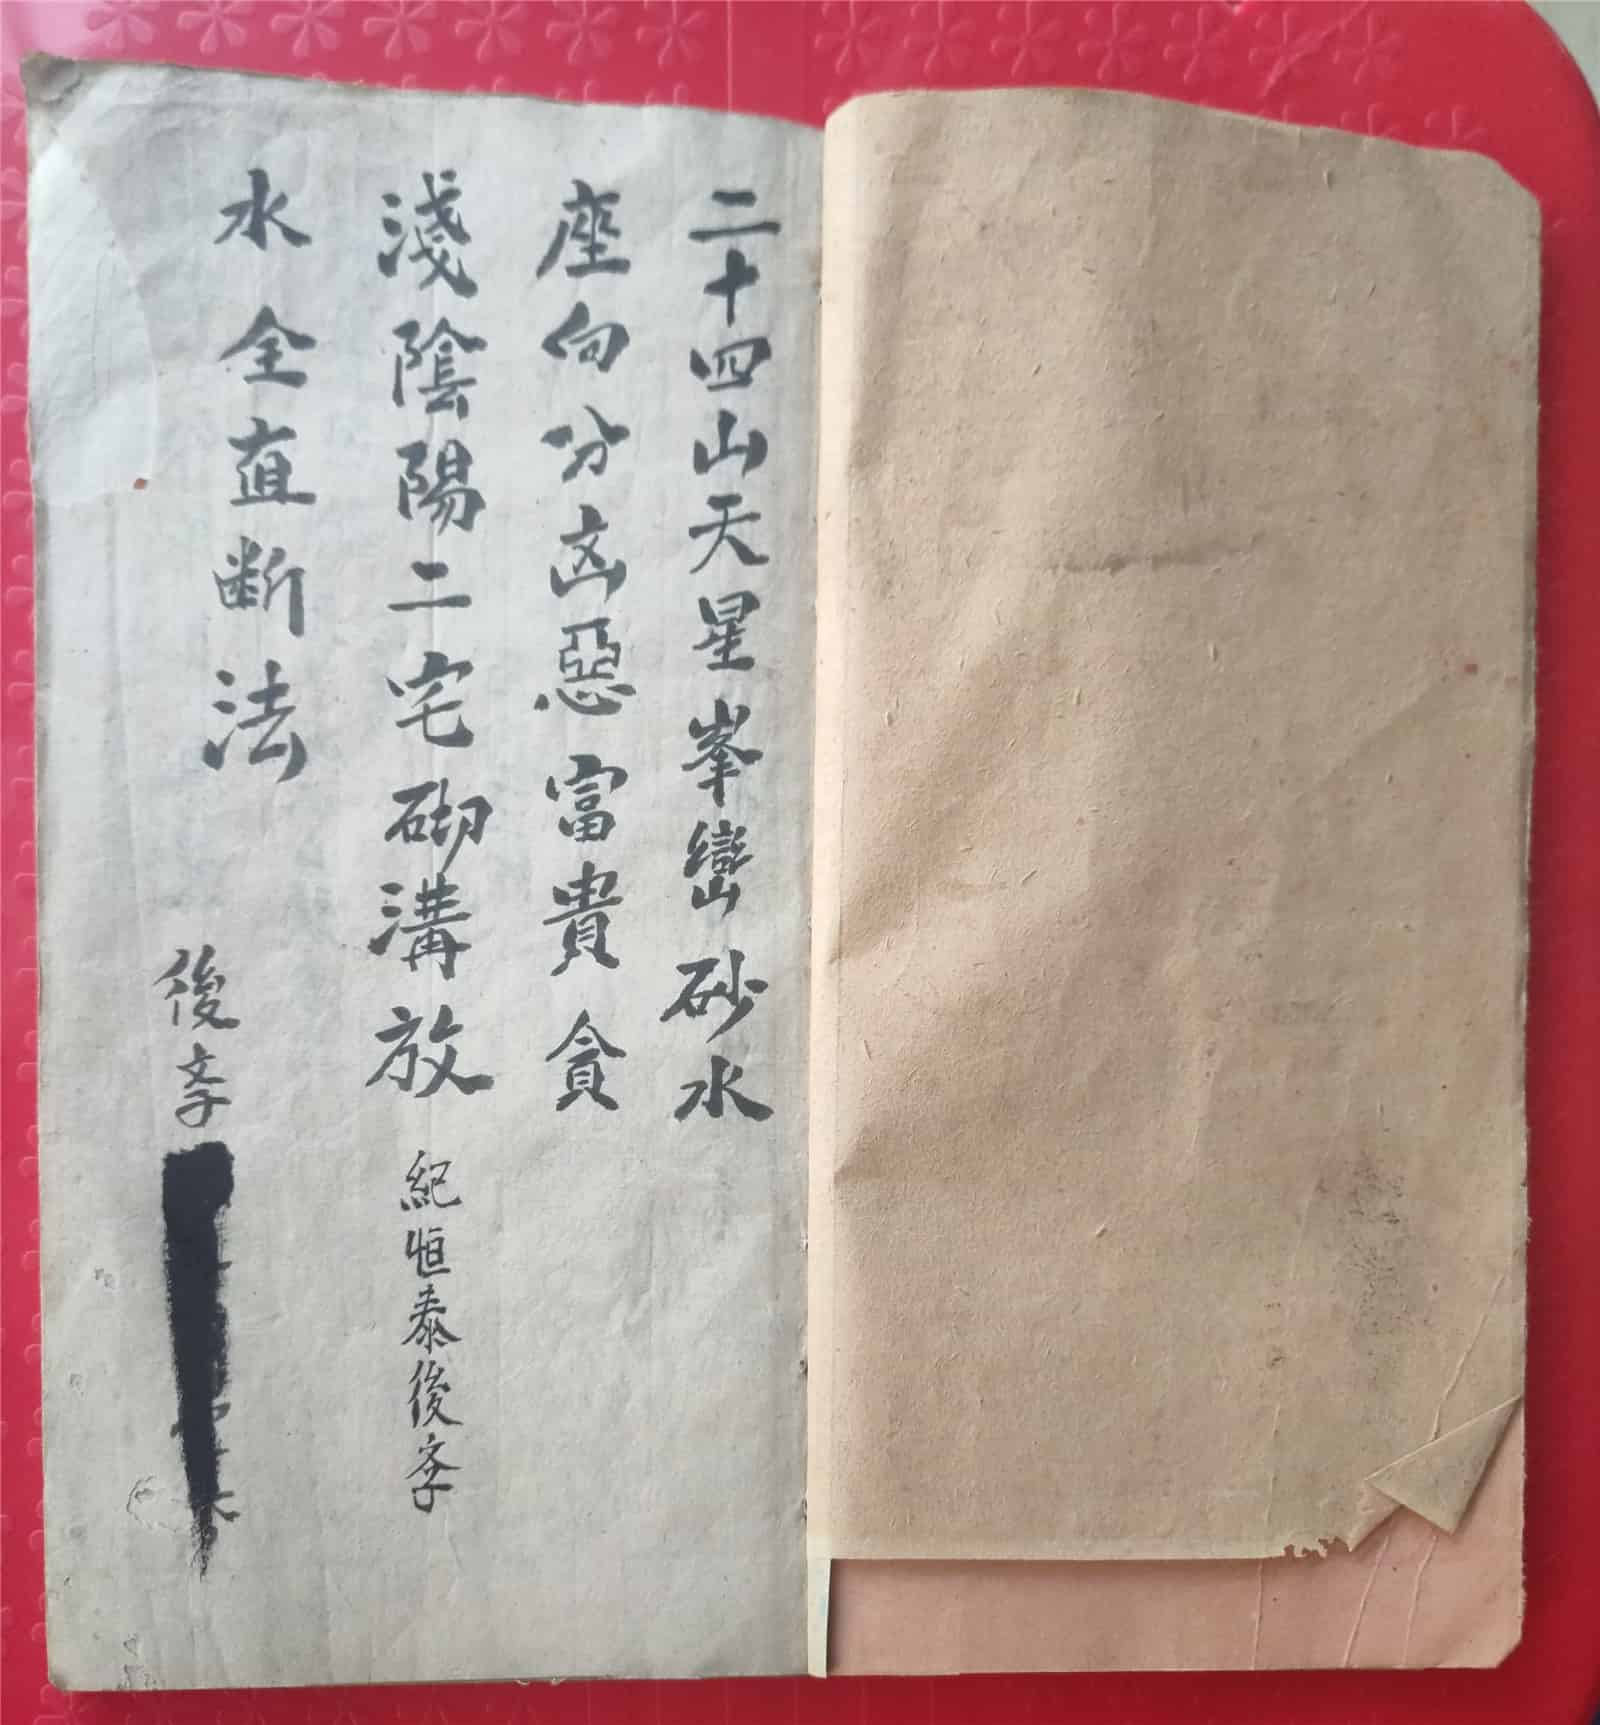 二十四山天星峯巒砂水
座向分㐫惡富貴貪
淺陰陽二宅砌溝放
紀恒泰後斈
水全直断法
後斈